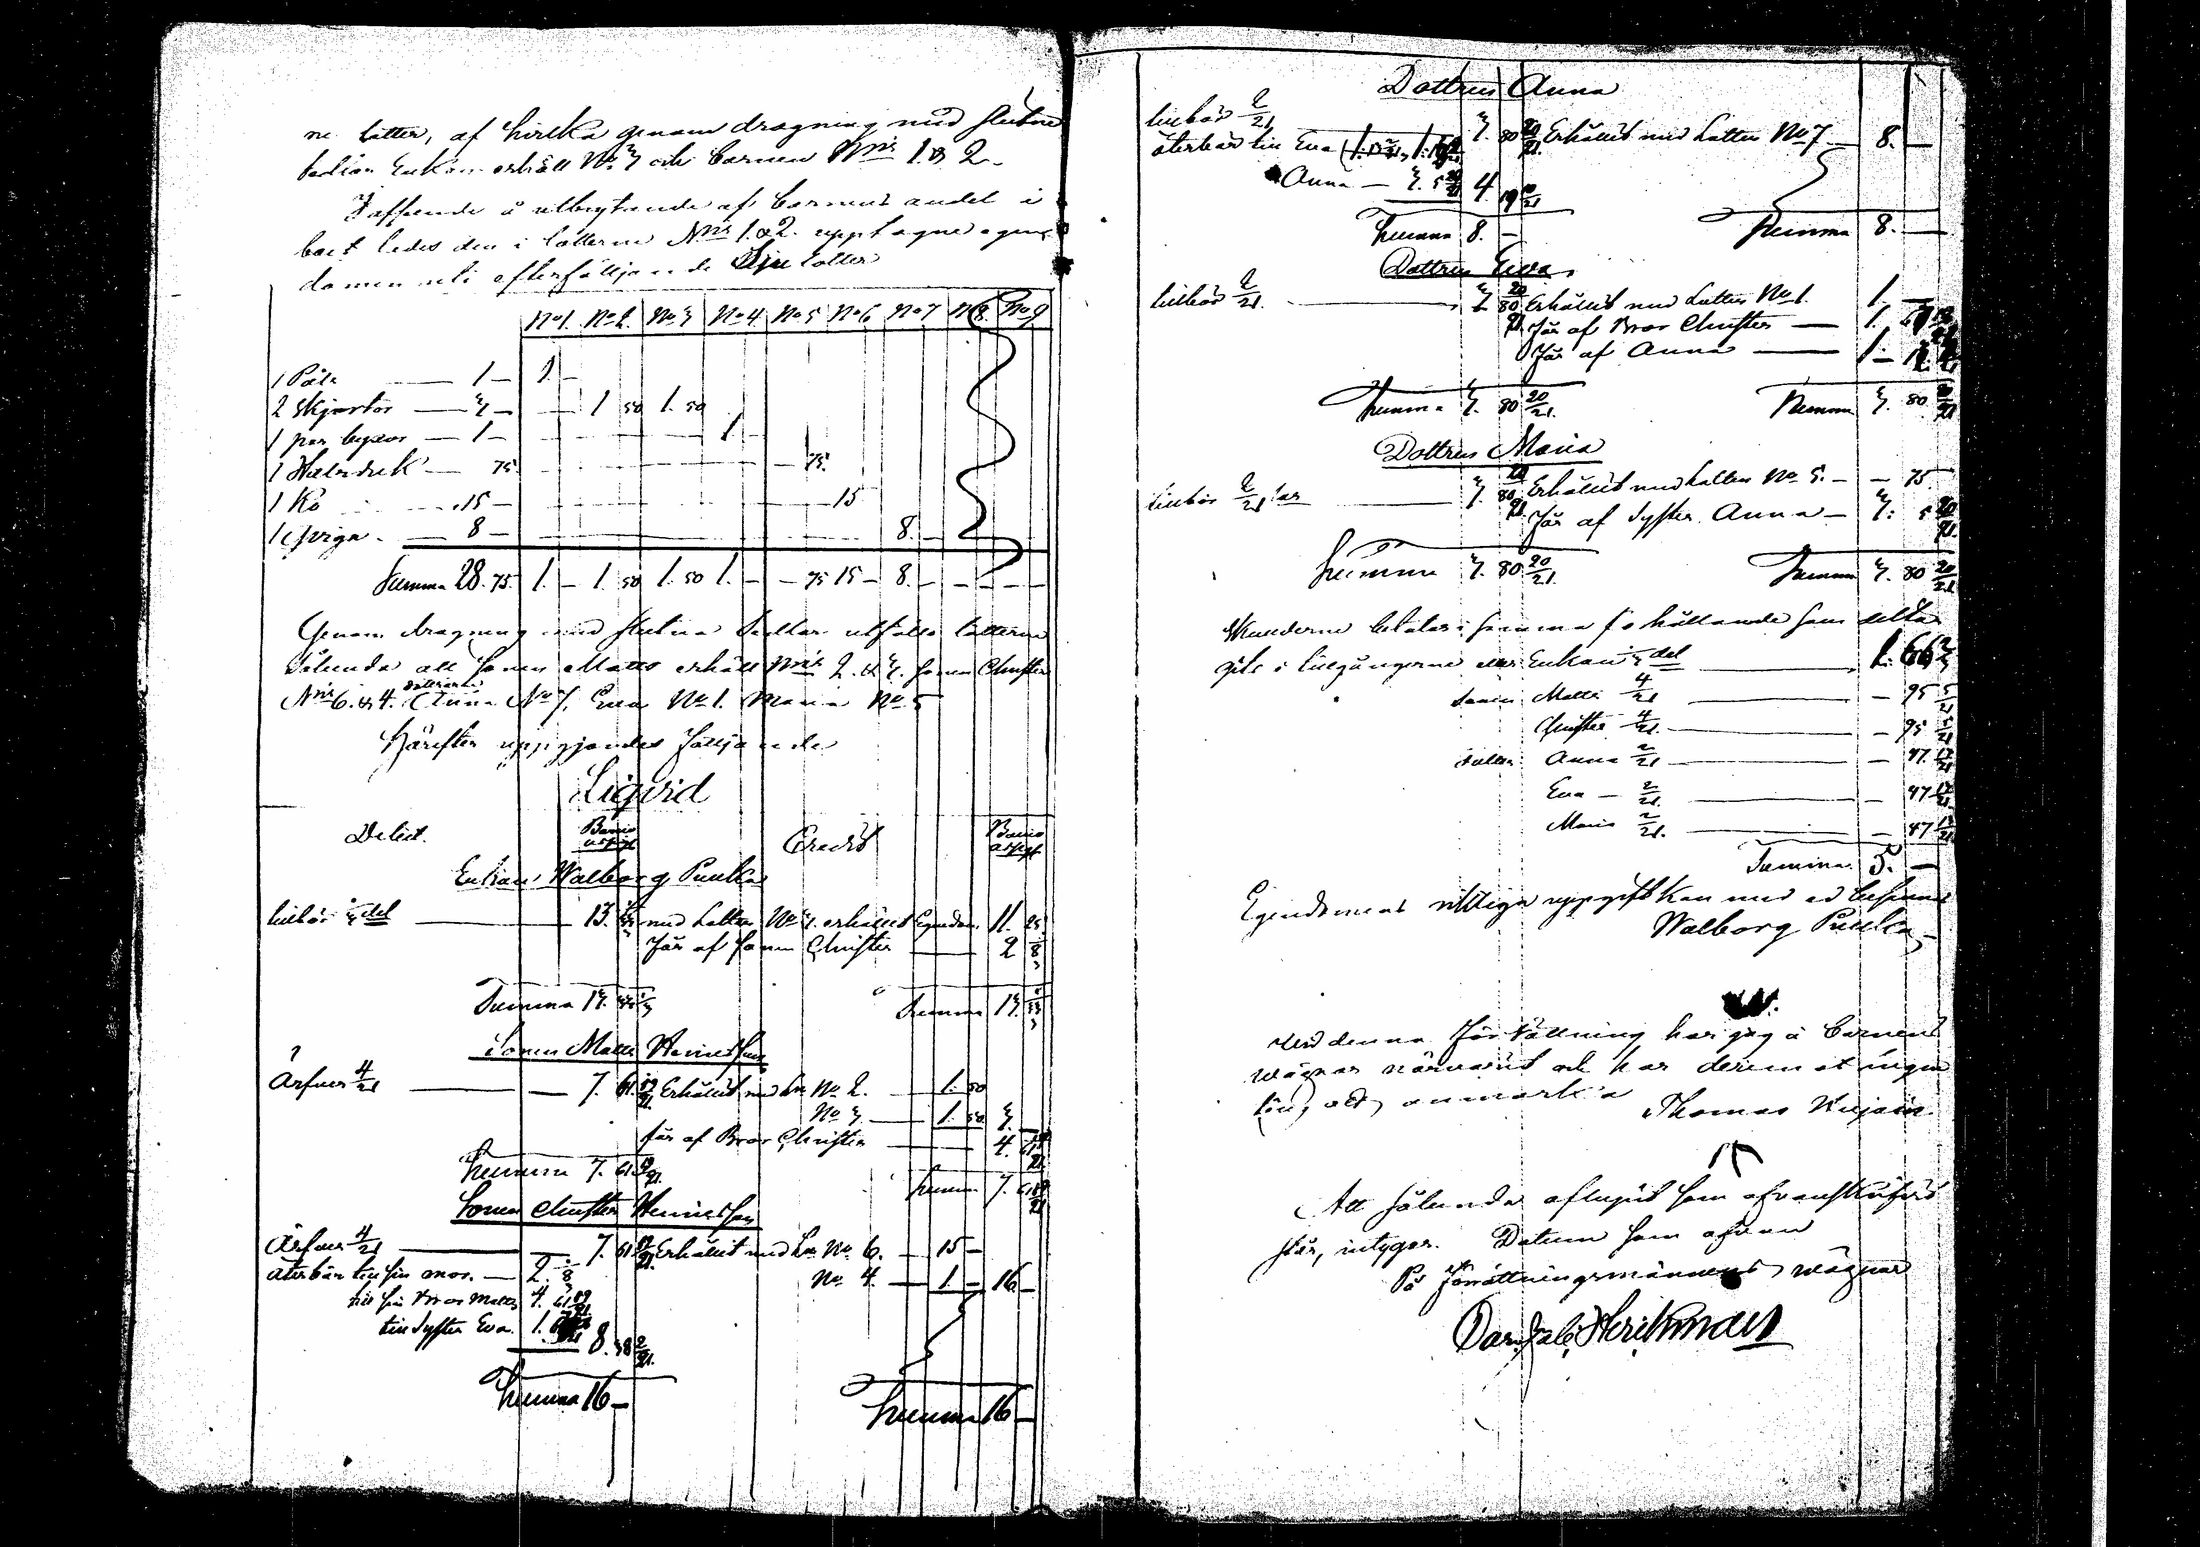 ne lotter, af hvilka genom dragning med slutne
sedlar Enkan erhöll No 3 och barnen Nris 1 & 2.
I afseende å utbrytande af barnens andel i
boet lades den i lotterne Nris 1. & 2. upptagne egen-
domen uti efterföljande Sju lotter
No 1. No 2. No 3 No 4 No 5 No 6 No 7 No 8. No 9
1 Päls — 1 — 1. —
2 Skjortor — 3 — 1 50 1. 50
1 par byxor — 1 — 1 —
1 Halsduk — 75. 75.
1 Ko 15 — 15
1 qviga — 8 — 8. —
Summa 28. 75. 1. — 1. 50 1. 50 1. — — 75 15 — 8. — — — — —
Genom dragning med slutna Sedlar utföllo lotterne
Sålunda att Sonen Matts erhöll Nris 2. & 3. Sonen Christer
Nris 6. & 4. döttrarne Anna No 7. Eva No 1. Maria No 5
Härefter uppgjordes följande
Liqvid
Debet. Banco assign Credit Banco assign
Enkan Walborg Puukka
tillhör 1/3 del — 13. med Lotten No 3. erhållit Egendom 11. 25
får af Sonen Christer — 2 8
Summa 13. Summa 13.
Sonen Matts Henriksson
Ärfver 4/21 — 7. 61. 19/21. Erhållit med Ln No 2. — 1. 50
No 3 — 1. 50 3.
får af Bror Christer — 4. 61 19/21.
Summa 7. 61. 19/21. Summa 7. 61 19/21
Sonen Christer Henriksson
Ärfver 4/21 — 7. 61. 19/21. Erhållit med Ln No 6. — 15 —
Återbär till sin mor. — 2. 8 No 4. — 1 — 16 —
till sin Bror Matts 4. 61 19/21
till Syster Eva. 1. 8. 38 2/21.
Summa 16 — Summa 16 —
Dottren Anna
tillhör 2/21 3. 80 20/21. Erhållit med Lotten No 7 — 8. —
återbär till Eva
Anna — 3. 5 20/21 4. 19 1/21
Summa 8. — Summa 8. —
Dottren Eva.
tillhör 2/21. — 3. 80 20/21 Erhållit med Lotten No 1. 1. —
Får af Bror Christer — 1.
Får af Anna — 1 —
Summa 3. 80 20/21. Summa 3. 80 20/21
Dottren Maria
tillhör 2/21 — 3. 80 20/21. Erhållit med Lotten No 5. — — 75
Får af Syster Anna — 3. 5 20/21.
Summa 3. 80 20/21. Summa 3. 80 20/21
Skulderne betalas i samma förhållande som delta-
gits i tillgångarne eller Enkan 1/3 del — 1. 66 2/3
Sonen Matts 4/21 — — 95 5/21
Christer 4/21. — — 95 5/21
dotter Anna 2/21 — — 47. 13/21
Eva — 2/21. — — 47 13/21
Maria 2/21. — — 47 13/21
Summa 5. —
Egendomens riktiga uppgift kan med ed besannas
Walborg Puukka
Vid denna förrättning har jag å barnens
wägnar närvarit och har deremot ingen
ting att anmärka Thomas
Att sålunda aflupit som ofvanskrifvit
står, intygar. Datum som ofvan
På Förrättningsmännens wägnar